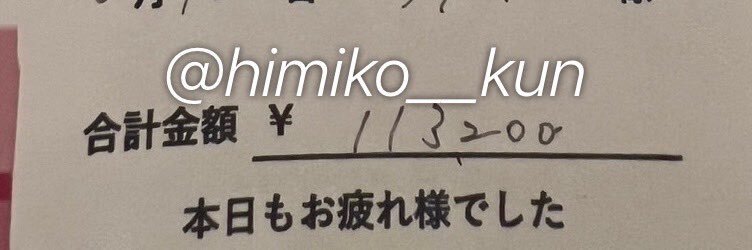 @himiko__kun
合計金額 ¥ 113200
本日もお疲れ様でした